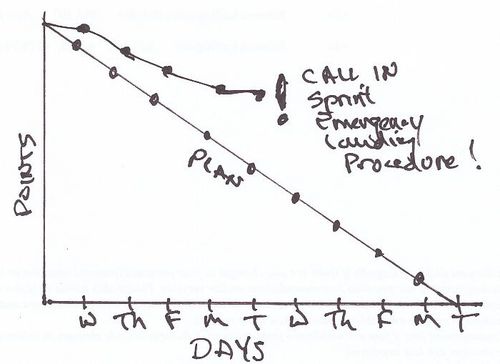 CALL IN
Sprint
Emergency
Landing
Procedure!
PLAN
POINTS
W Th F M T W Th F M T
DAYS